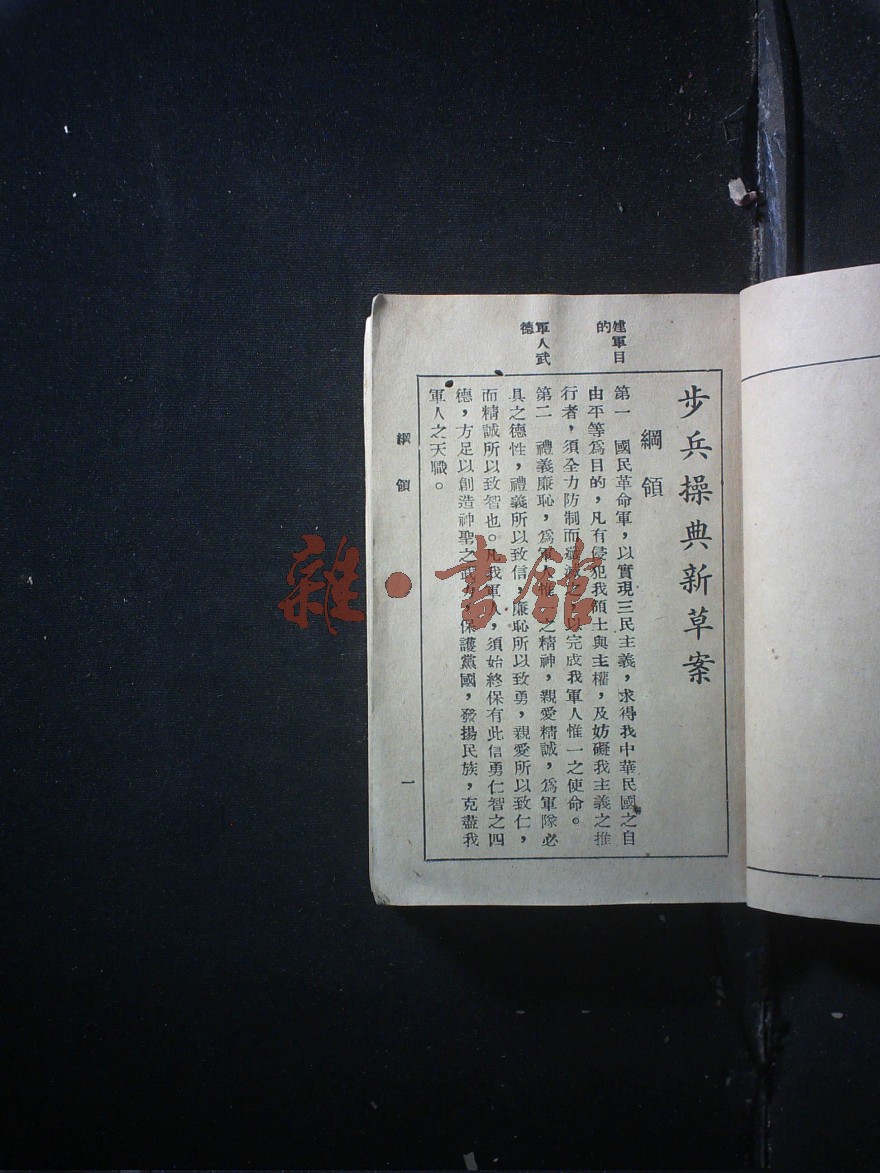 步兵操典新草案
綱領
建軍目
的
第一　國民革命軍，以實現三民主義，求得我中華民國之自
由平等爲目的，凡有侵犯我領土與主權，及妨礙我主義之推
行者，須全力防制而殲滅之，以完成我軍人惟一之使命。
軍人武
德
第二　禮義廉恥，爲軍人惟一之精神，親愛精誠，爲軍隊必
具之德性，禮義所以致信，廉恥所以致勇，親愛所以致仁，
而精誠所以致智也。凡我軍人，須始終保有此信勇仁智之四
德，方足以創造神聖之武力，保護黨國，發揚民族，克盡我
軍人之天職。
綱領
一
雜·書館